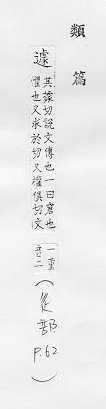 類篇
遽
其據切說文傳也一曰窘也
懼也又求於切又權俱切文
一重
音二
(辵部 P.62)